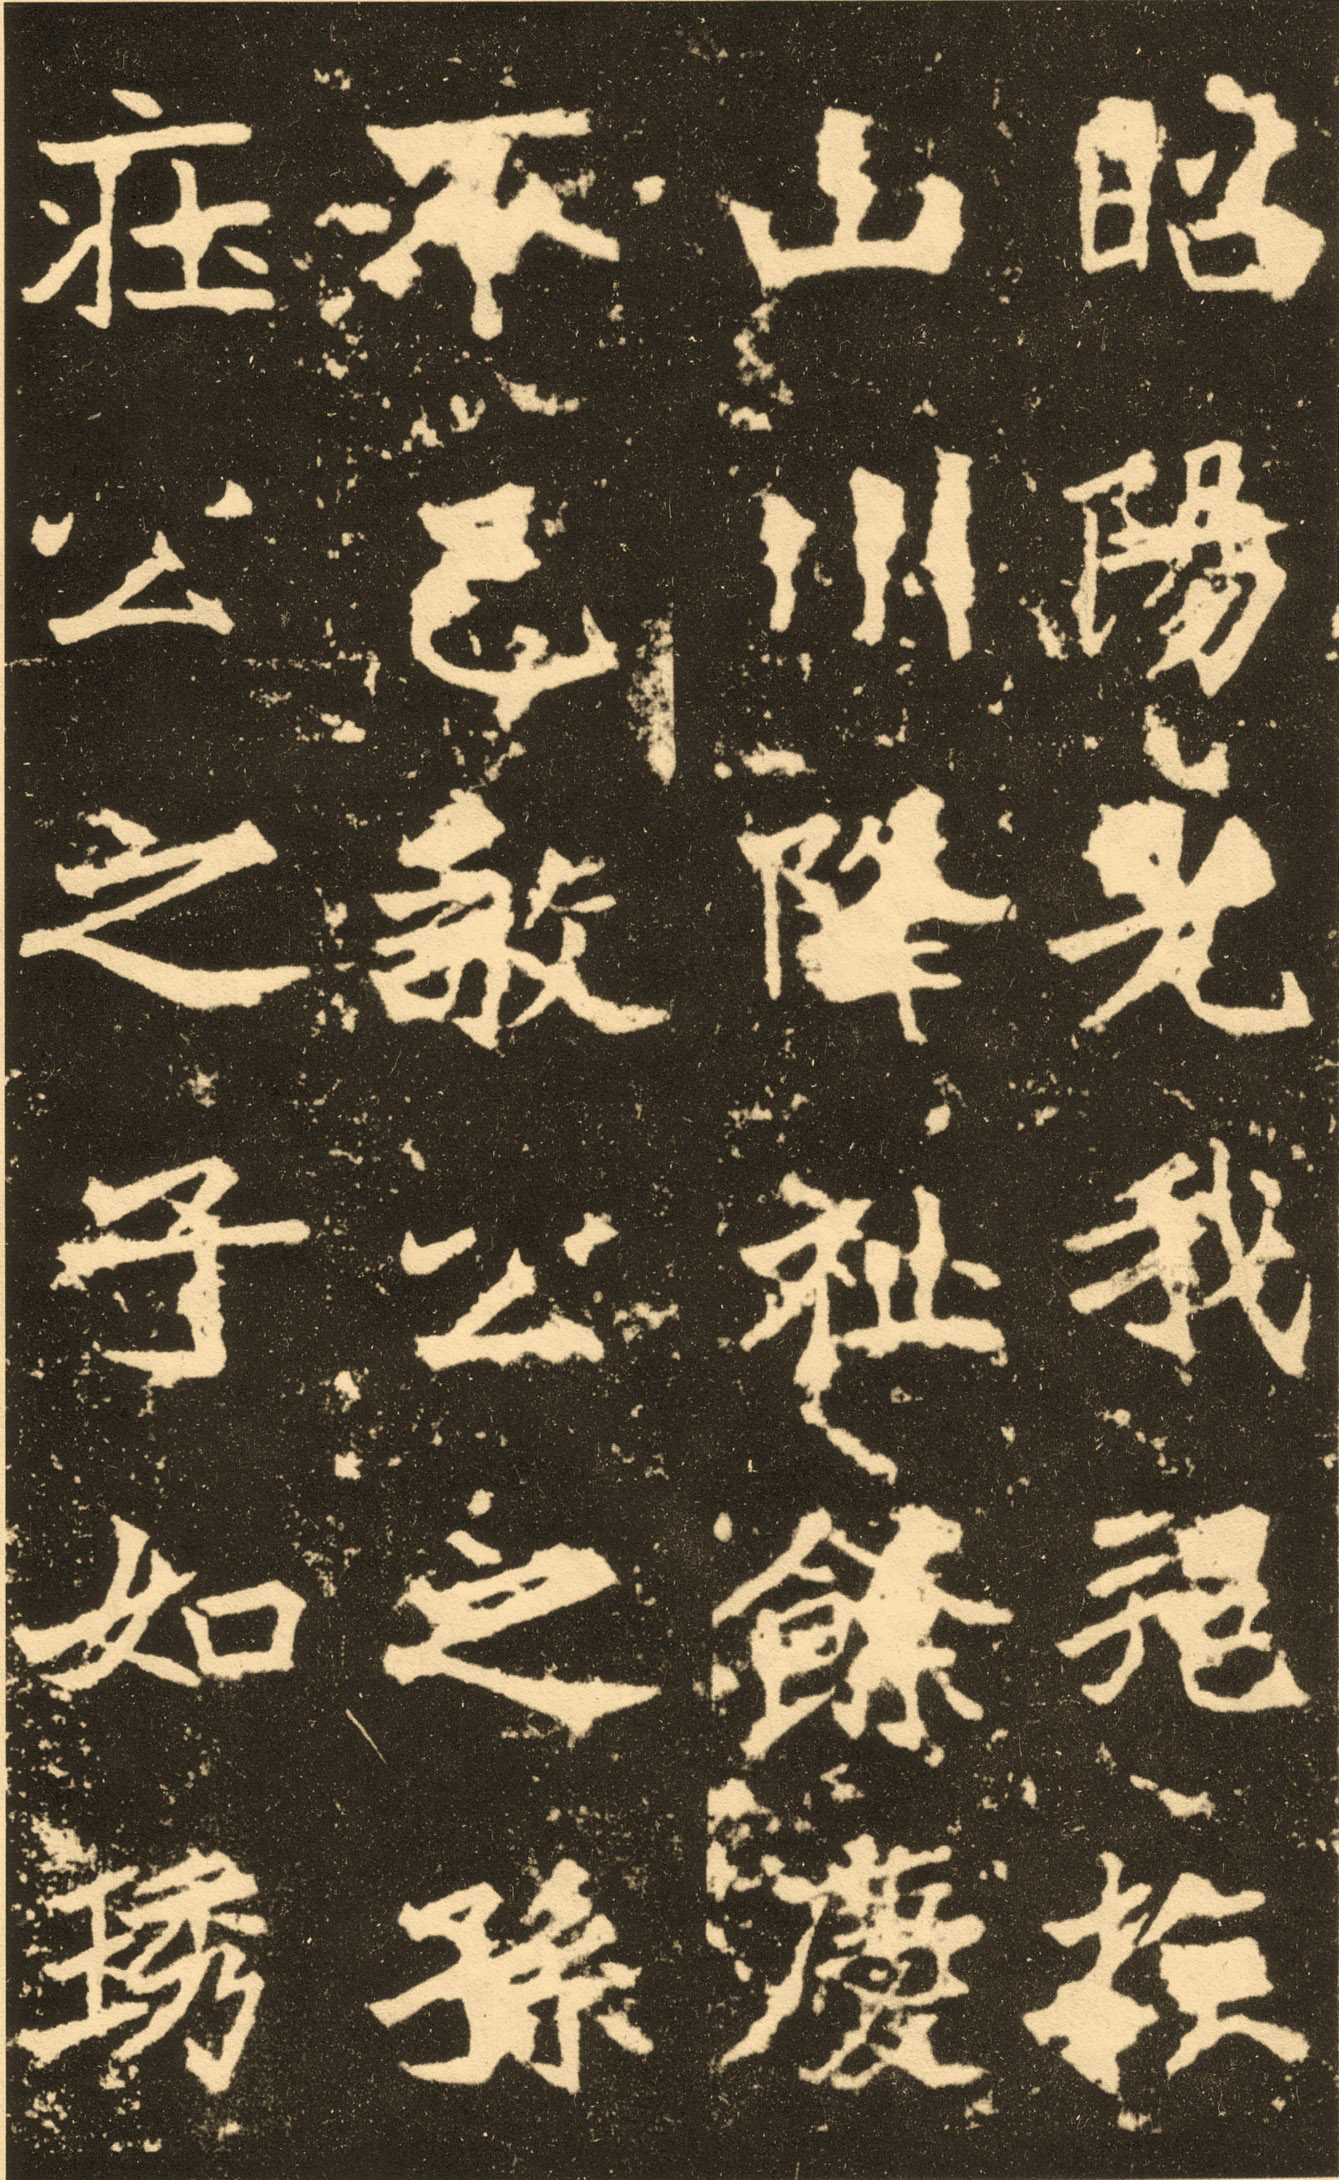 昭陽光我
山川降祉餘慶
不已敬公之孫
莊公之子如琇